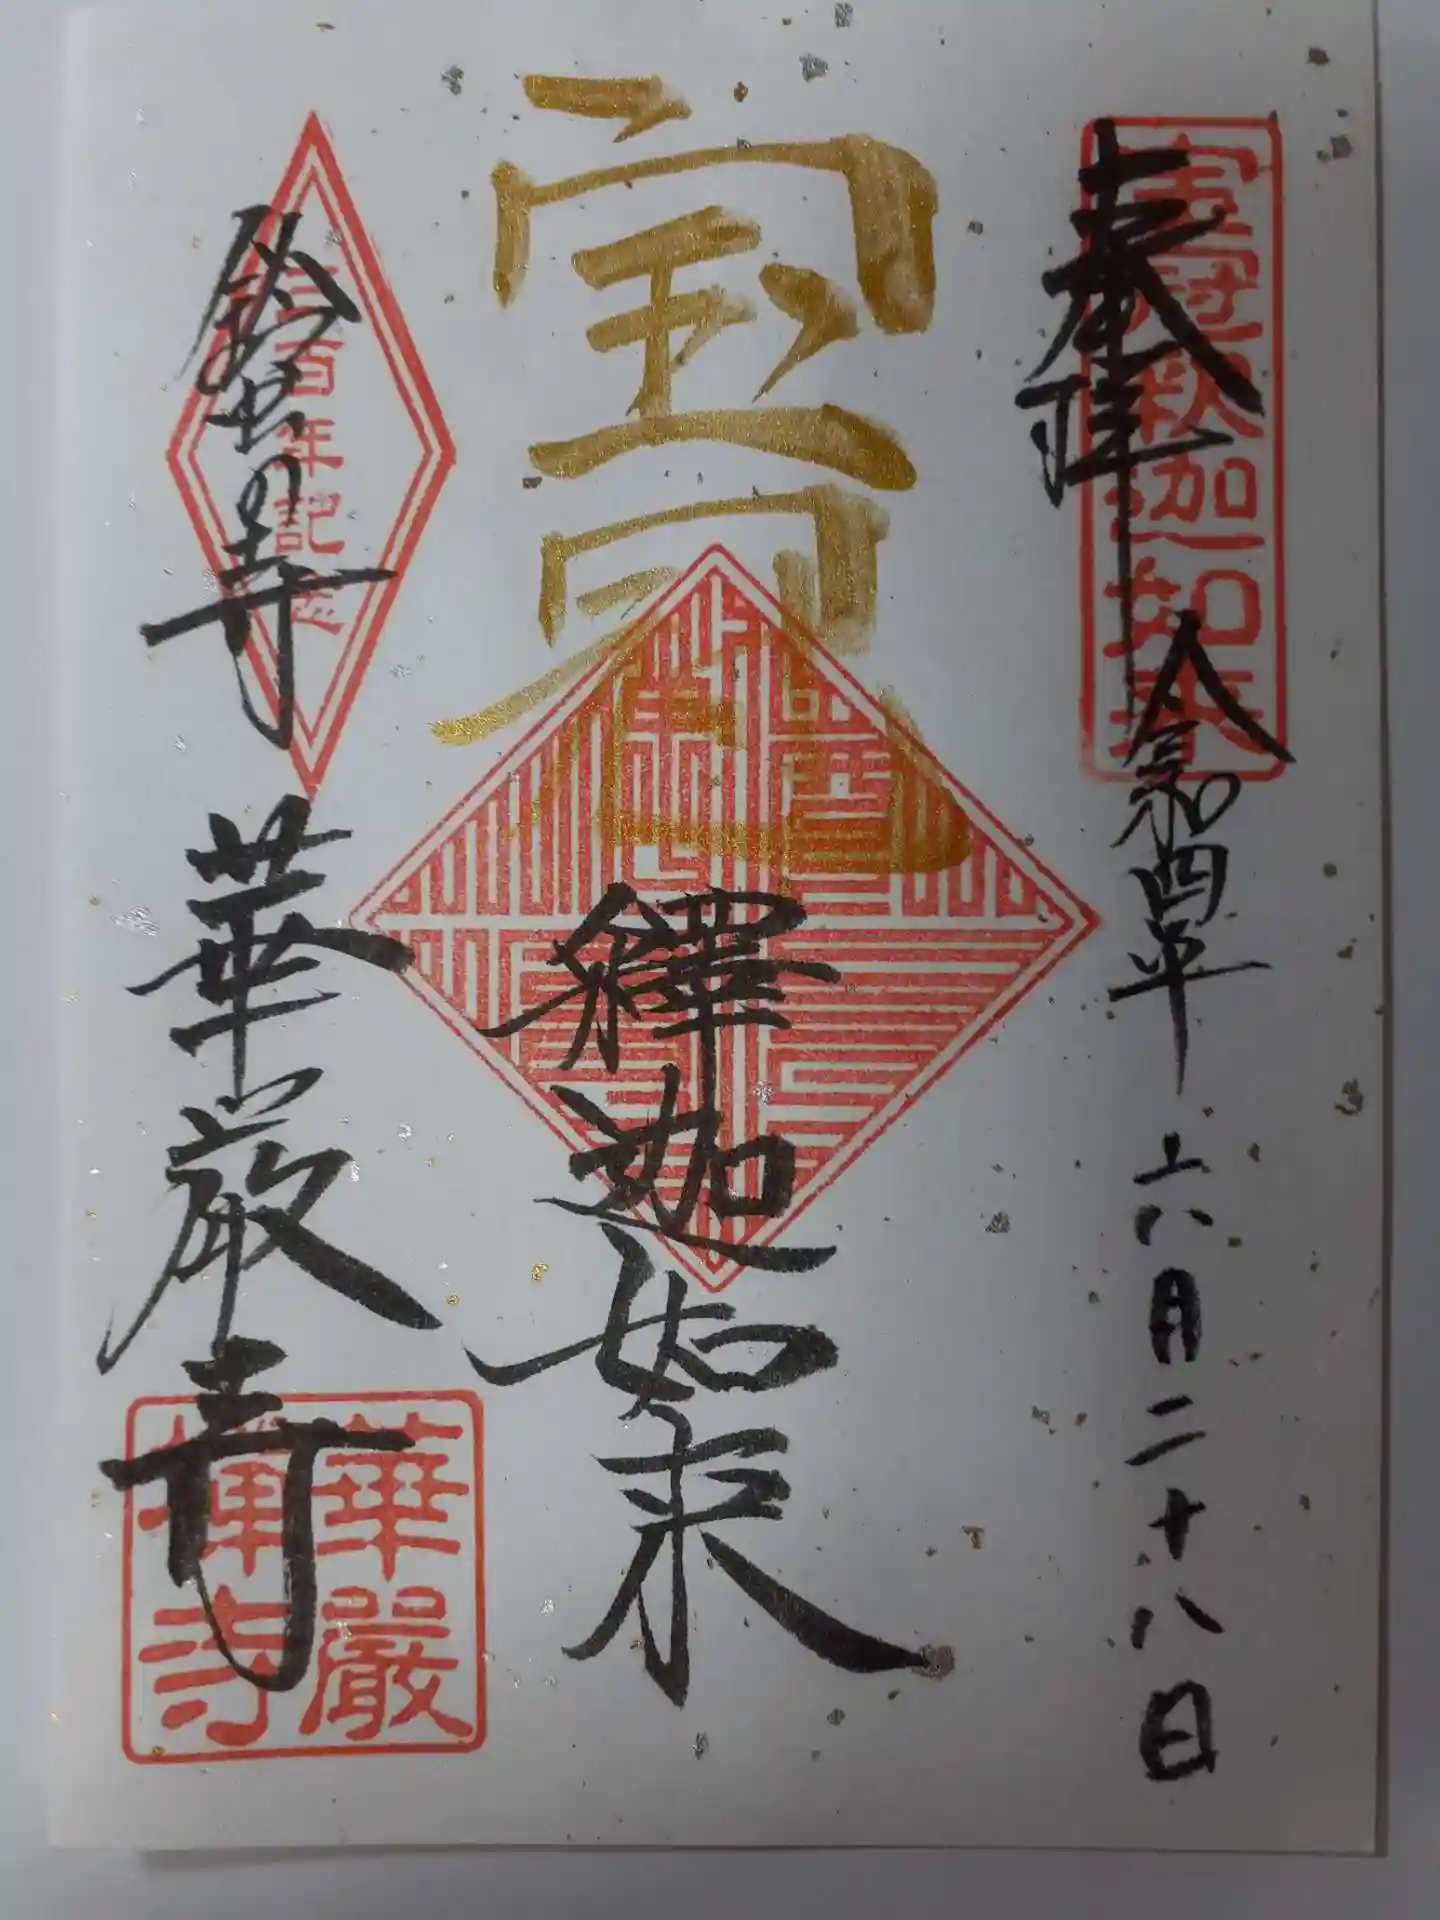 奉拝
令和四年
六月二十八日
宝冠釈迦如来
宝冠
釋迦如来
鈴虫の寺
華厳寺
三百年記念
華嚴
禅寺